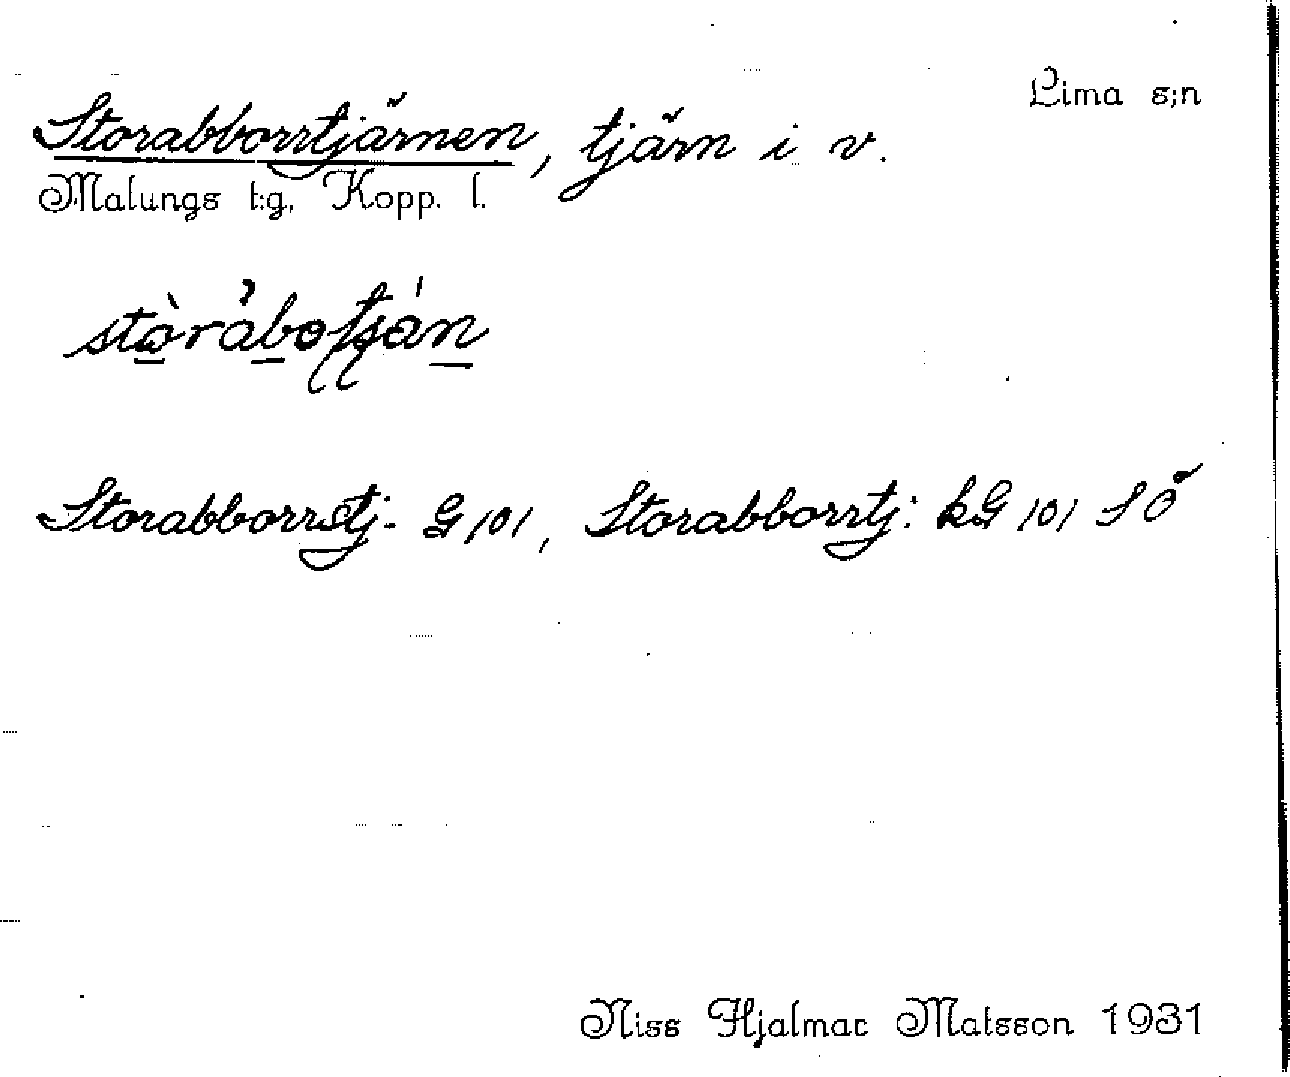 Lima s;n
Storabborrtjärnen, tjärn i v.
Malungs t:g, Kopp. l.
Storabborrstj- G 101, Storabborrtj: kG 101 SÖ
Niss Hjalmar Matsson 1931